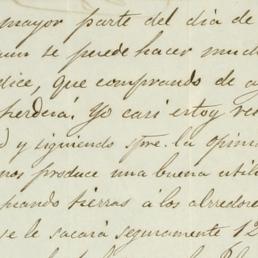 mayor parte del dia de
aun se puede hacer much
dice, que comprando de a
perderá! Yo casi estoy re
d y siguiendo spre. la opin
nos produce una buena util
prando tierras á los alrededor
se le sacará seguramente 12